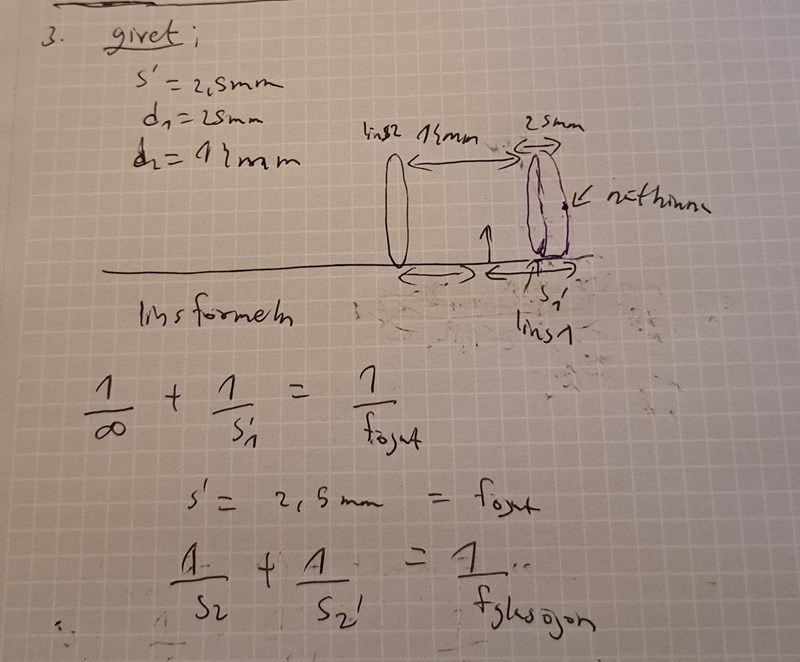 3. givet;
s' = 2,5mm
d₁ = 25mm
d₂ = 14mm
lins2 14mm 25mm
näthinna
s₁'
lins1
linsformeln
1/∞ + 1/s₁' = 1/f
s' = 2,5mm = f
1/s₂ + 1/s₂' = 1/f